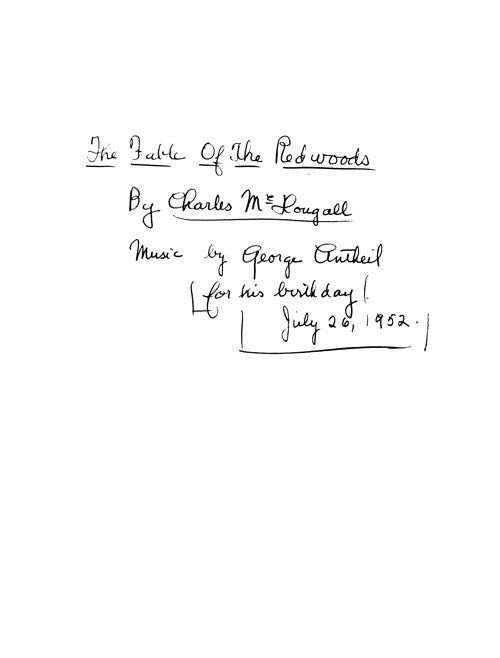 The Fable Of The Redwoods
By Charles McDougall
Music by George Antheil
for his birthday
July 26, 1952.